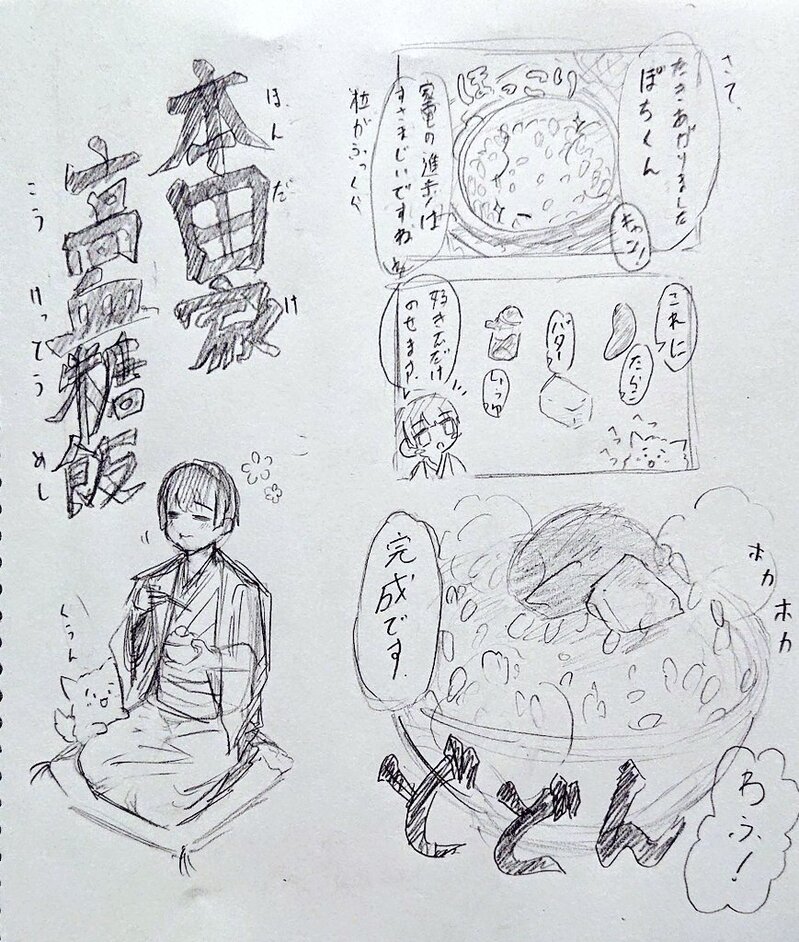 さて、
たきあがりました
ぽちくん
ほっこり
キャン！
家電の進歩は
すさまじいですねぇ
粒がふっくら
これに
たらこ
バター
しょうゆ
好きなだけ
のせます。
へっ
へっ
完成です。
ホカ
ホカ
どどん
わふ！
本田家
ほんだけ
高血糖飯
こうけっとうめし
くぅん